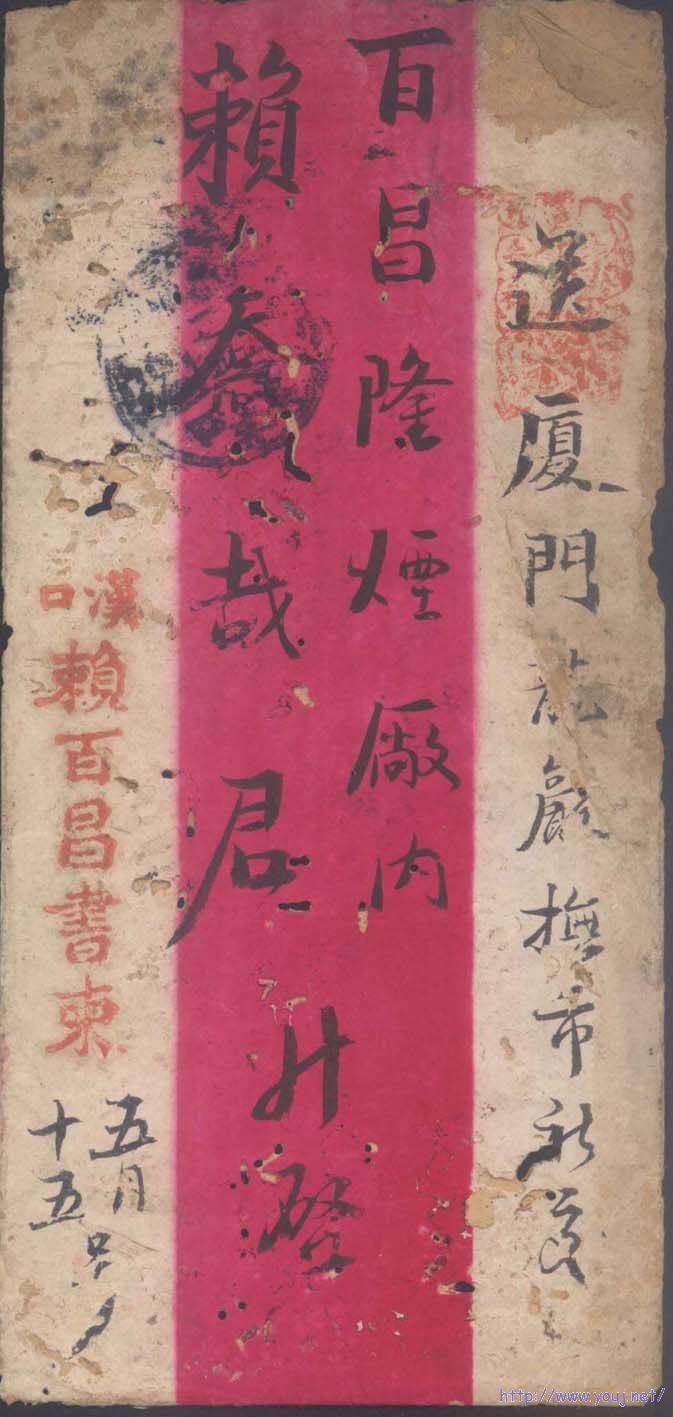 送廈門龍巖撫市新
百昌隆煙厰内
賴叅哉君升啓
漢口
賴百昌書柬
五月
十五
http://www.youj.net/